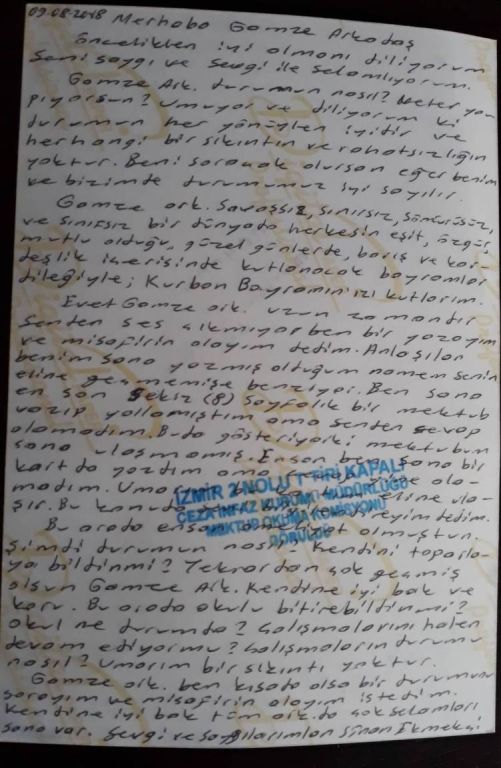 09.08.2018 Merhaba Gamze Arkadaş
öncelikten iyi olmanı diliyorum
Seni saygı ve sevgi ile selamlıyorum.
Gamze Ark. durumun nasıl? Neler ya-
pıyorsun? Umuyor ve diliyorum ki
durumun her yönüyten iyidir ve
herhangi bir sıkıntın ve rahatsızlığın
yoktur. Beni soracak olursan eğer benim
ve bizimde durumumuz iyi sayılır.
Gamze ark. Savaşsız, sınırsız, sömürüsüz,
ve sınıfsız bir dünyada herkesin eşit, özgür
mutlu olduğu, güzel günlerde, barış ve kar-
deşlik içerisinde kutlanacak bayramlar
dileğiyle; Kurban Bayramınızı kutlarım.
Evet Gamze ark. uzun zamandır
Senten ses çıkmıyor ben bir yazayım
ve misafirin olayım dedim. Anlaşılan
benim sana yazmış olduğum namem senin
eline geçmemişe benziyor. Ben sana
en son sekiz (8) sayfalık bir mektub
yazıp yollamıştım ama senden cevap
alamadım. Buda gösteriyorki mektubum
sana ulaşmamış. En son ben sana bir
kart da yazdım ama
madım. Umarım eline ula-
şır. Bu eline ula-
İZMİR 2 NOLU T TİPİ KAPALI
CEZA İNFAZ KURUMU MÜDÜRLÜĞÜ
MEKTUP OKUMA KOMİSYONU
GÖRÜLDÜ
Bu arada en son ameliyat olmuştun.
Şimdi durumun nasıl? Kendini toparla-
ya bildinmi? Tekrardan çok geçmiş
olsun Gamze Ark. Kendine iyi bak ve
koru. Bu arada okulu bitirebildinmi?
Okul ne durumda? Çalışmalarını halen
devam ediyormu? Çalışmaların durumu
nasıl? Umarım bir sıkıntı yoktur.
Gamze ark. ben kısada olsa bir durumunu
sorayım ve misafirin olayım istedim.
Kendine iyi bak tüm ark.da çok selamları
sana var. Sevgi ve Saygılarımlan Sinan Ekmekçi